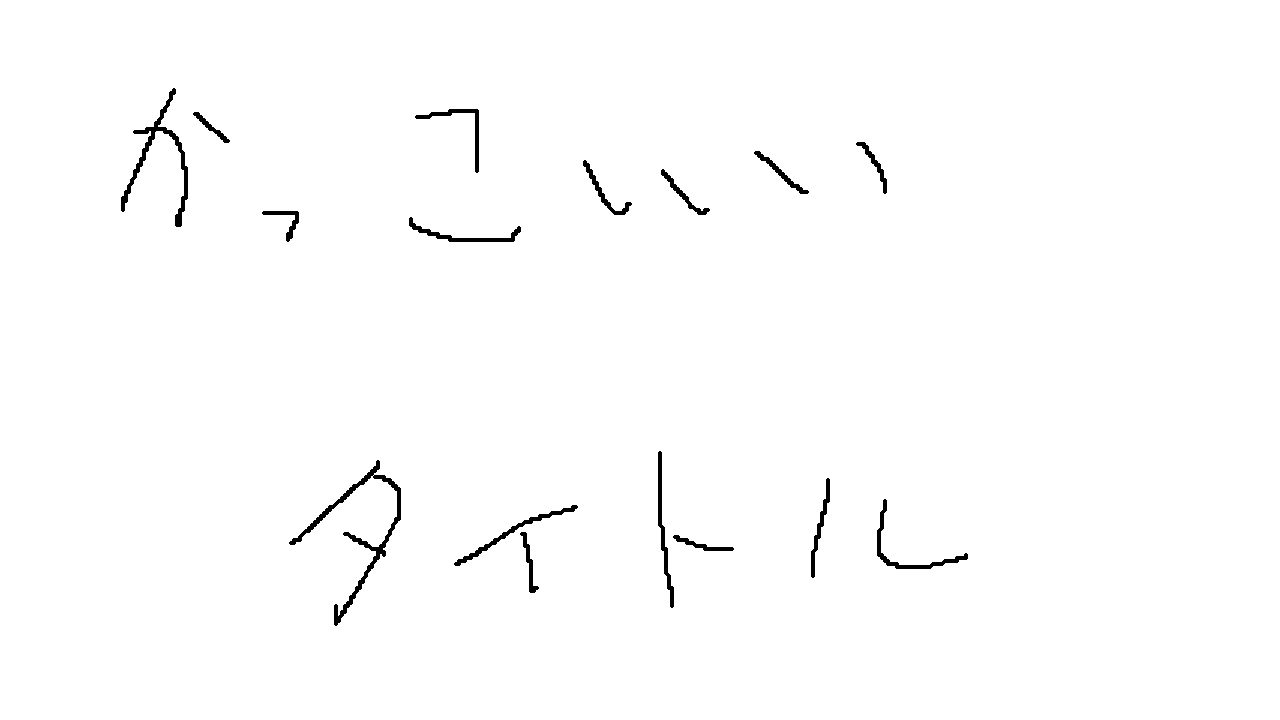 かっこいい
タイトル